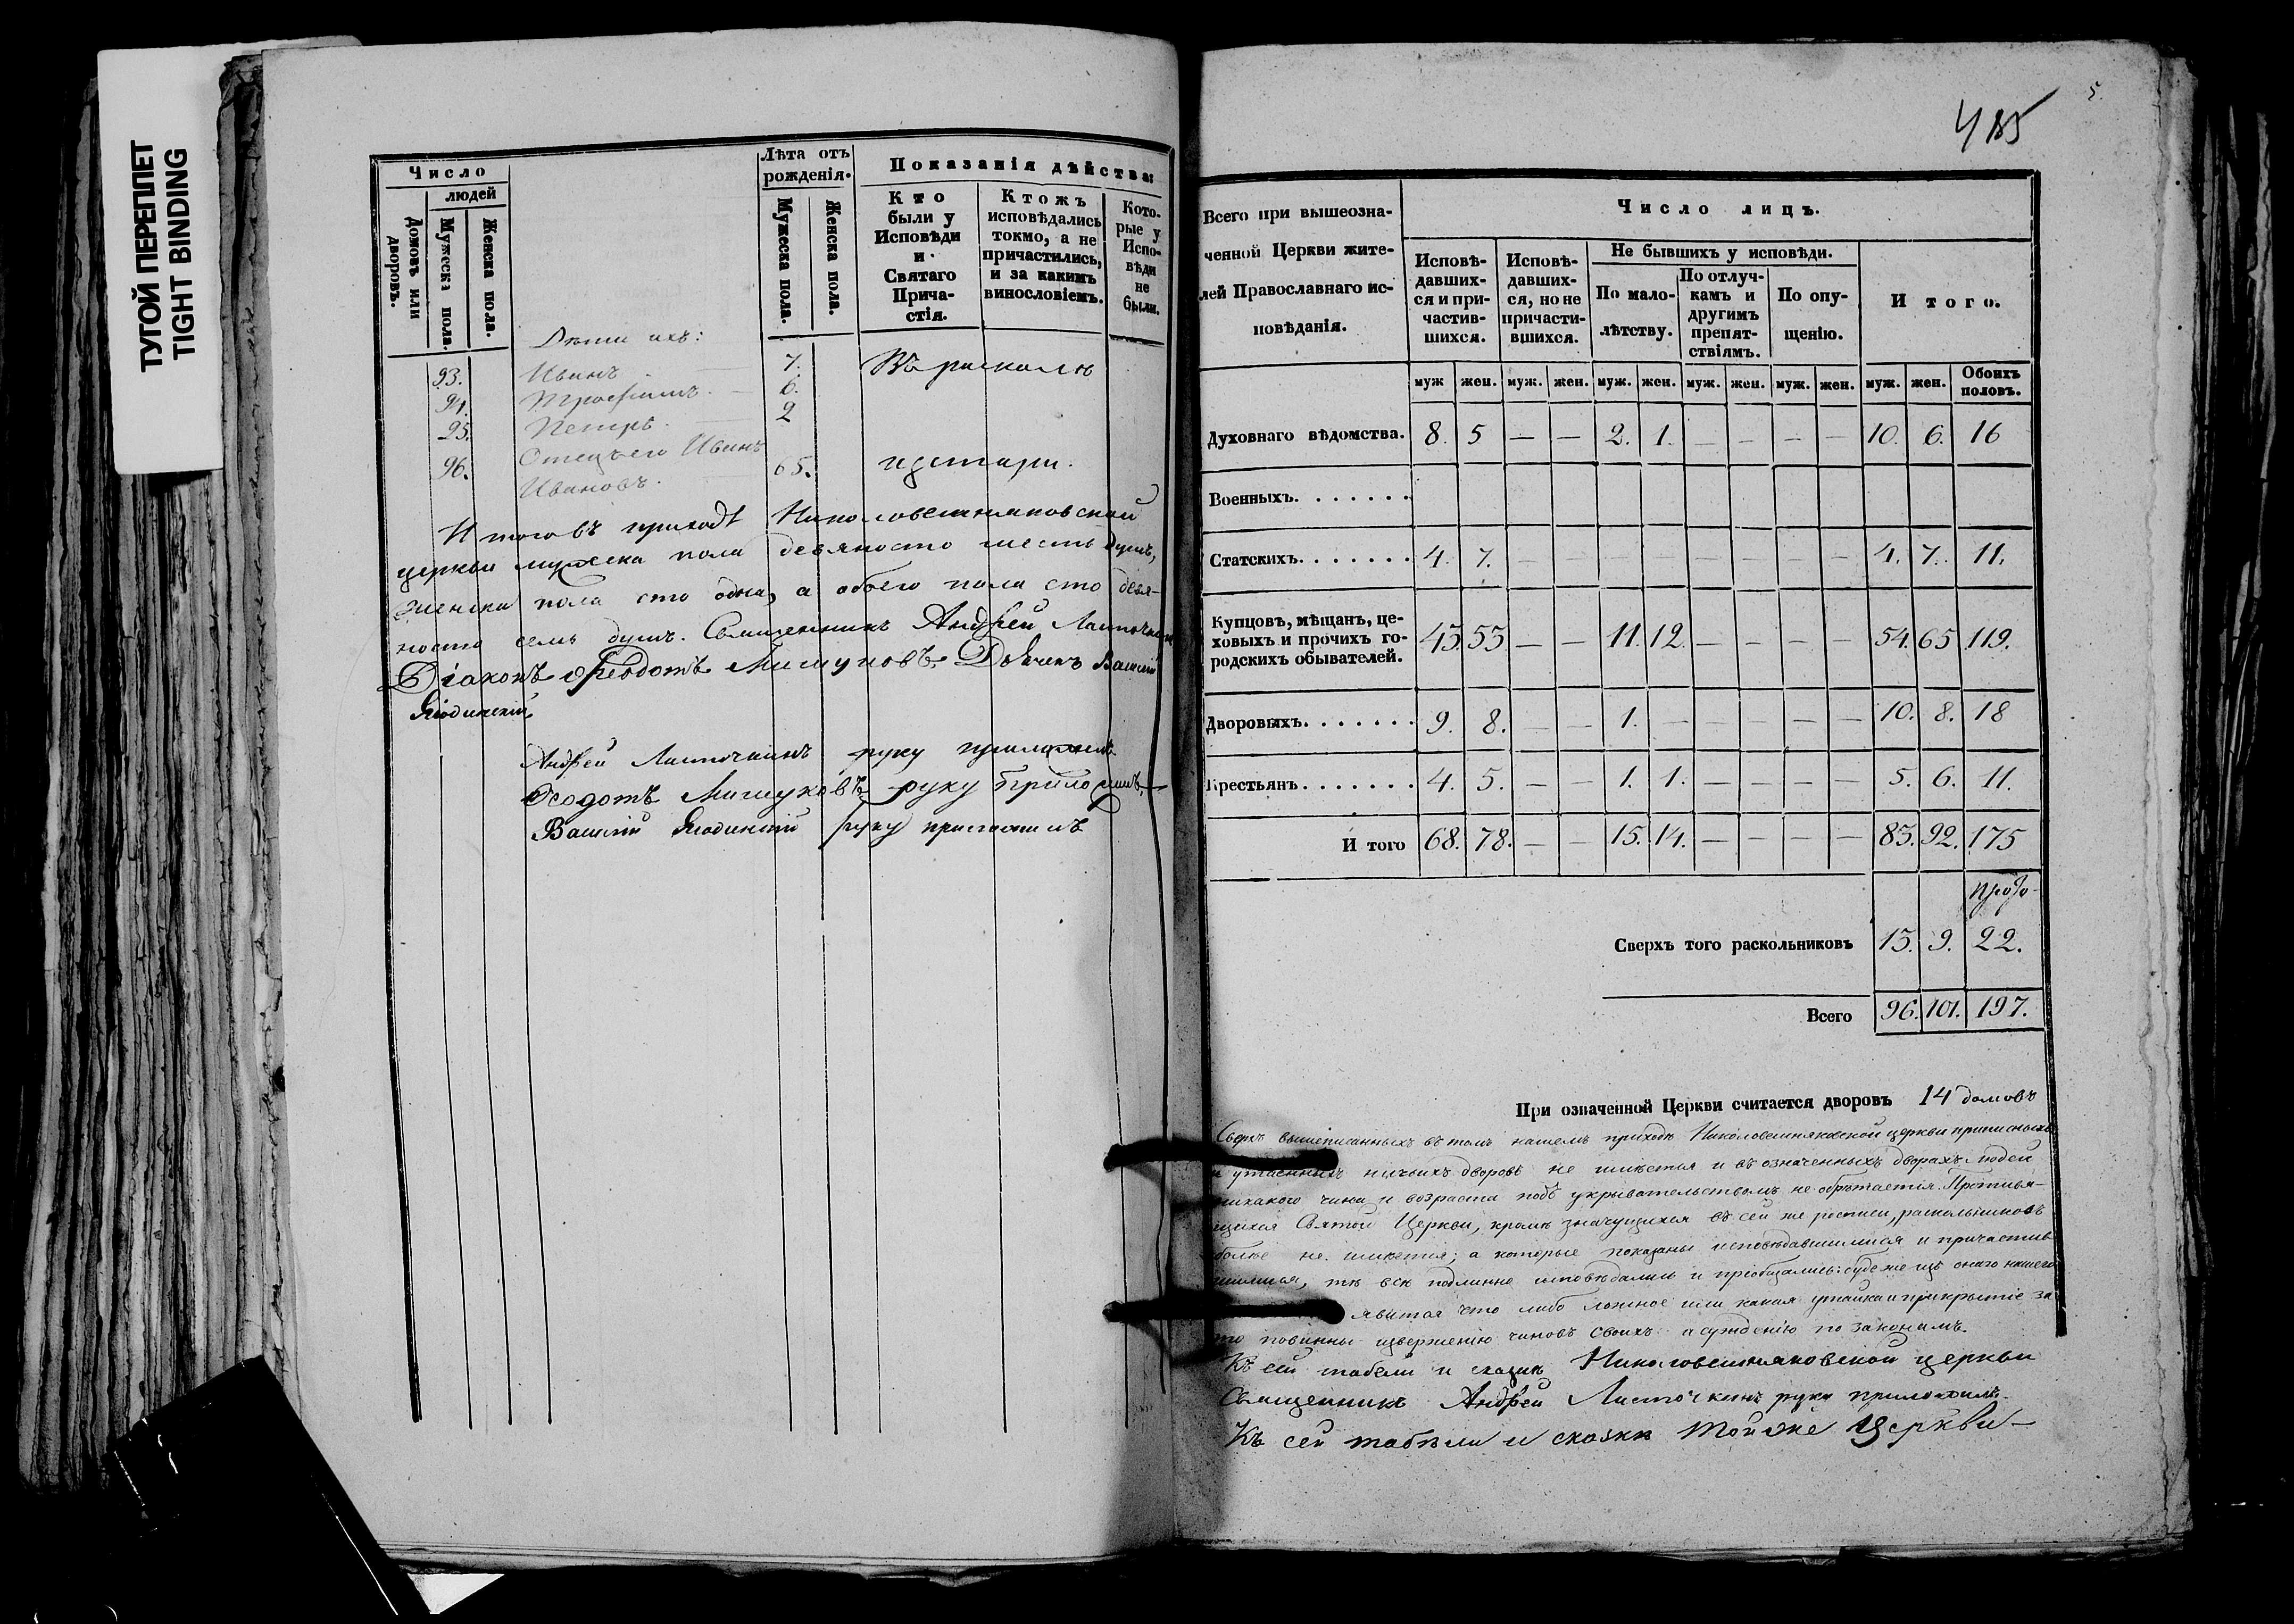 ТУГОЙ ПЕРЕПЛЕТ
TIGHT BINDING
Число
людей
Домовъ или дворовъ.
Мужеска пола.
Женска пола.
Лѣта отъ рожденія.
Мужеска пола.
Женска пола.
Показанія дѣйства:
Кто были у Исповѣди и Святаго Причастія.
Ктожъ исповѣдались токмо, а не причастились, и за какимъ винословіемъ.
Которые у Исповѣди не были.
Дѣти ихъ:
93. Иванъ 7. Въ расколѣ
94. Трофимъ. 6.
95. Петръ. 2
Отецъ его Иванъ
96. Ивановъ. 65. издтари.
Итого въ приходѣ Николовешняковской
церкви мужеска пола девяносто шесть душъ,
женска пола сто одна, а обоего пола сто девя-
носто семь душъ. Священникъ Андрей Ласточкинъ
Діаконъ Ѳеодотъ Мишуковъ. Дьячекъ Василій
Андрей Ласточкинъ руку приложилъ.
Ѳеодотъ Мишуковъ руку приложилъ.
Василій руку приложилъ
5.
485
Всего при вышеозна-
ченной Церкви жите-
лей Православнаго ис-
повѣданія.
Число лицъ.
Исповѣ-
давших-
ся и при-
частив-
шихся.
Исповѣ-
давших-
ся, но не
причасти-
вшихся.
Не бывшихъ у исповѣди.
По мало-
лѣтству.
По отлуч-
камъ и
другимъ
препят-
ствіямъ.
По опу-
щенію.
Итого.
муж жен. муж. жен. муж. жен. муж. жен. муж. жен. муж. жен. Обоихъ половъ.
Духовнаго вѣдомства. 8. 5 — — 2. 1. — — — — 10. 6. 16
Военныхъ.......
Статскихъ....... 4. 7. — — — — — — — — 4. 7. 11.
Купцовъ, мѣщан, це-
ховыхъ и прочихъ го-
родскихъ обывателей.
43. 53 — — 11. 12. — — — — 54. 65 119.
Дворовыхъ....... 9. 8. — — 1. — — — — — 10. 8. 18
Крестьянъ....... 4. 5. — — 1. 1. — — — — 5. 6. 11.
И того 68. 78. — — 15. 14. — — — — 83. 92. 175
Сверхъ того раскольниковъ 13. 9. 22.
Всего 96. 101. 197.
При означенной Церкви считается дворовъ 14 домовъ
Сверхъ вышеписанныхъ въ томъ нашемъ приходѣ Николовешняковской церкви приписныхъ
и утаенныхъ ничьихъ дворовъ не имѣется и въ означенныхъ дворахъ людей
никакого чина и возраста подъ укрывательствомъ не обрѣтается. Противя-
щихся Святой Церкви, кромѣ значущихся въ сей же росписи, раскольниковъ
болѣе не имѣется; а которые показаны исповѣдавшимися и причастив-
шимися, тѣ всѣ подлинно исповѣдались и пріобщались: буде же изъ онаго нашего
явится что либо ложное или какая утайка и прикрытіе за
то повинны изверженію чиновъ своихъ и сужденію по законамъ.
Къ сей табели и сказкѣ Николовешняковской церкви
Священникъ Андрей Ласточкинъ руку приложилъ.
Къ сей табели и сказкѣ тойже Церкви